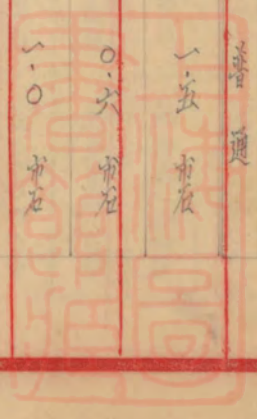 普通
一·五 市石
〇·六 市石
一·〇 市石